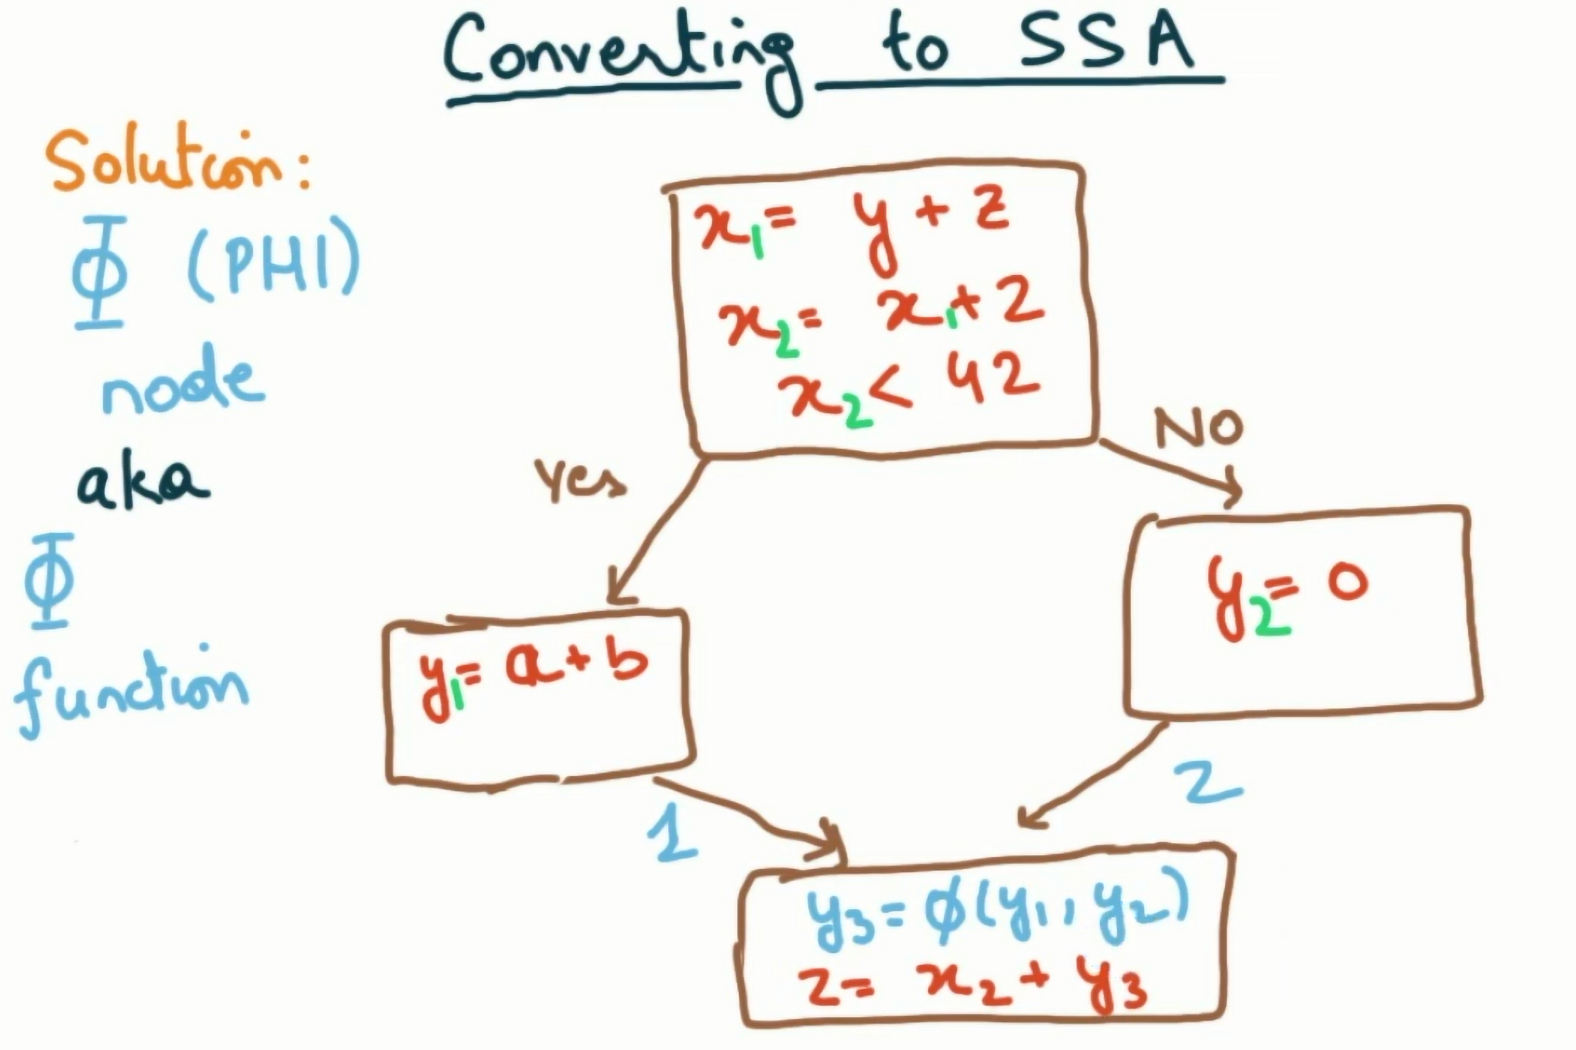 Converting to SSA
Solution:
Φ (PHI)
node
aka
Φ
function
x₁= y + z
x₂= x₁+ 2
x₂< 42
Yes
NO
y₁= a+b
y₂= 0
1
2
y₃= ϕ(y₁, y₂)
z= x₂+ y₃